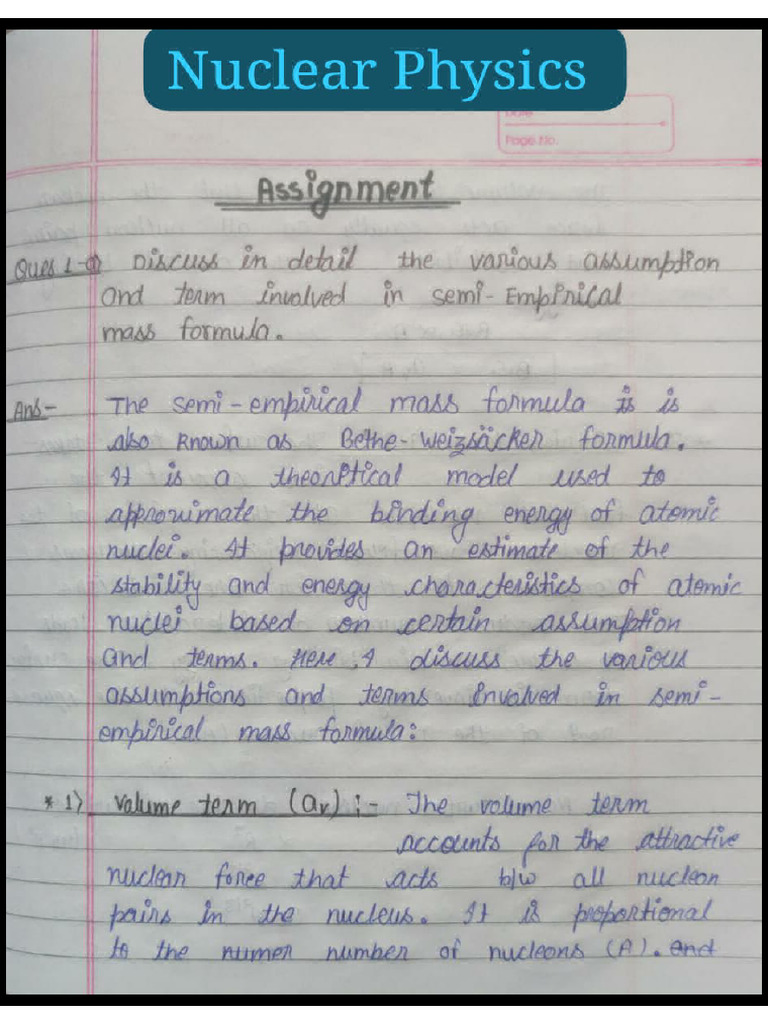 Nuclear Physics
Date
Page No.
Assignment
Ques 1-① Discuss in detail the various assumption
and term involved in semi-Empirical
mass formula.
Ans- The semi-empirical mass formula is is
also known as Bethe-Weizsäcker formula.
It is a theoretical model used to
approximate the binding energy of atomic
nuclei. It provides an estimate of the
stability and energy characteristics of atomic
nuclei based on certain assumption
and terms. Here, I discuss the various
assumptions and terms involved in semi-
empirical mass formula:
* 1) Volume term (av) :- The volume term
accounts for the attractive
nuclear force that acts b/w all nucleon
pairs in the nucleus. It is proportional
to the numer number of nucleons (A). and